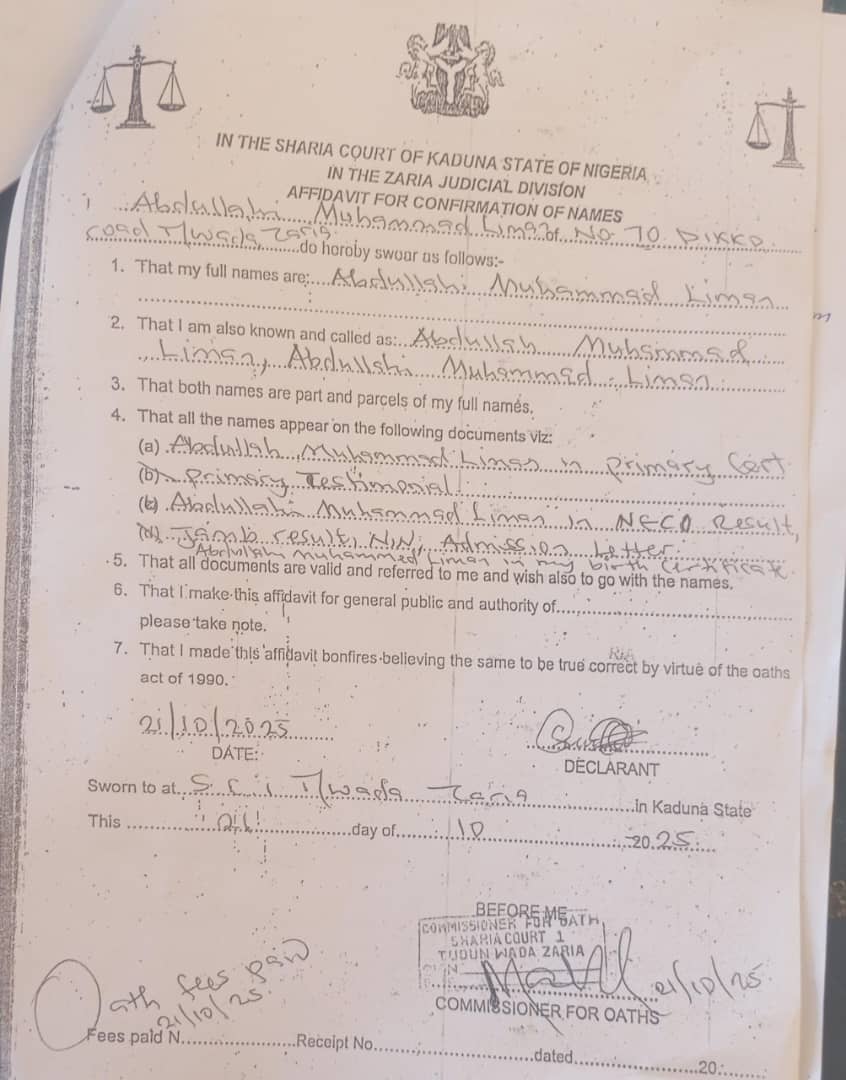 IN THE SHARIA COURT OF KADUNA STATE OF NIGERIA
IN THE ZARIA JUDICIAL DIVISION
AFFIDAVIT FOR CONFIRMATION OF NAMES
I Abdullahi Muhammad Liman of NO 70 DIKKO
road T/Wada, Zaria. do hereby swear as follows:-
1. That my full names are: Abdullahi Muhammad Liman
2. That I am also known and called as: Abdullah Muhammad
Liman, Abdullahi Muhammed Liman
3. That both names are part and parcels of my full names.
4. That all the names appear on the following documents viz:
(a) Abdullah Muhammad Liman in primary Cert
(b) primary Testimonial
(c) Abdullahi Muhammad Liman in NECO Result,
(d) Jamb result, NIN, Admission Letter.
Abdullahi Muhammed Liman in my birth Certificate.
5. That all documents are valid and referred to me and wish also to go with the names.
6. That I make this affidavit for general public and authority of
please take note.
7. That I made this affidavit bonfires believing the same to be true correct by virtue of the oaths
act of 1990.
21/10/2025
DATE:
DECLARANT
Sworn to at S.C.1 T/Wada Zaria in Kaduna State
This 21 day of 10 2025
BEFORE ME
COMMISSIONER FOR OATH
SHARIA COURT 1
TUDUN WADA ZARIA
21/10/25
COMMISSIONER FOR OATHS
Oath fees paid
21/10/25
Fees paid N Receipt No. dated 20